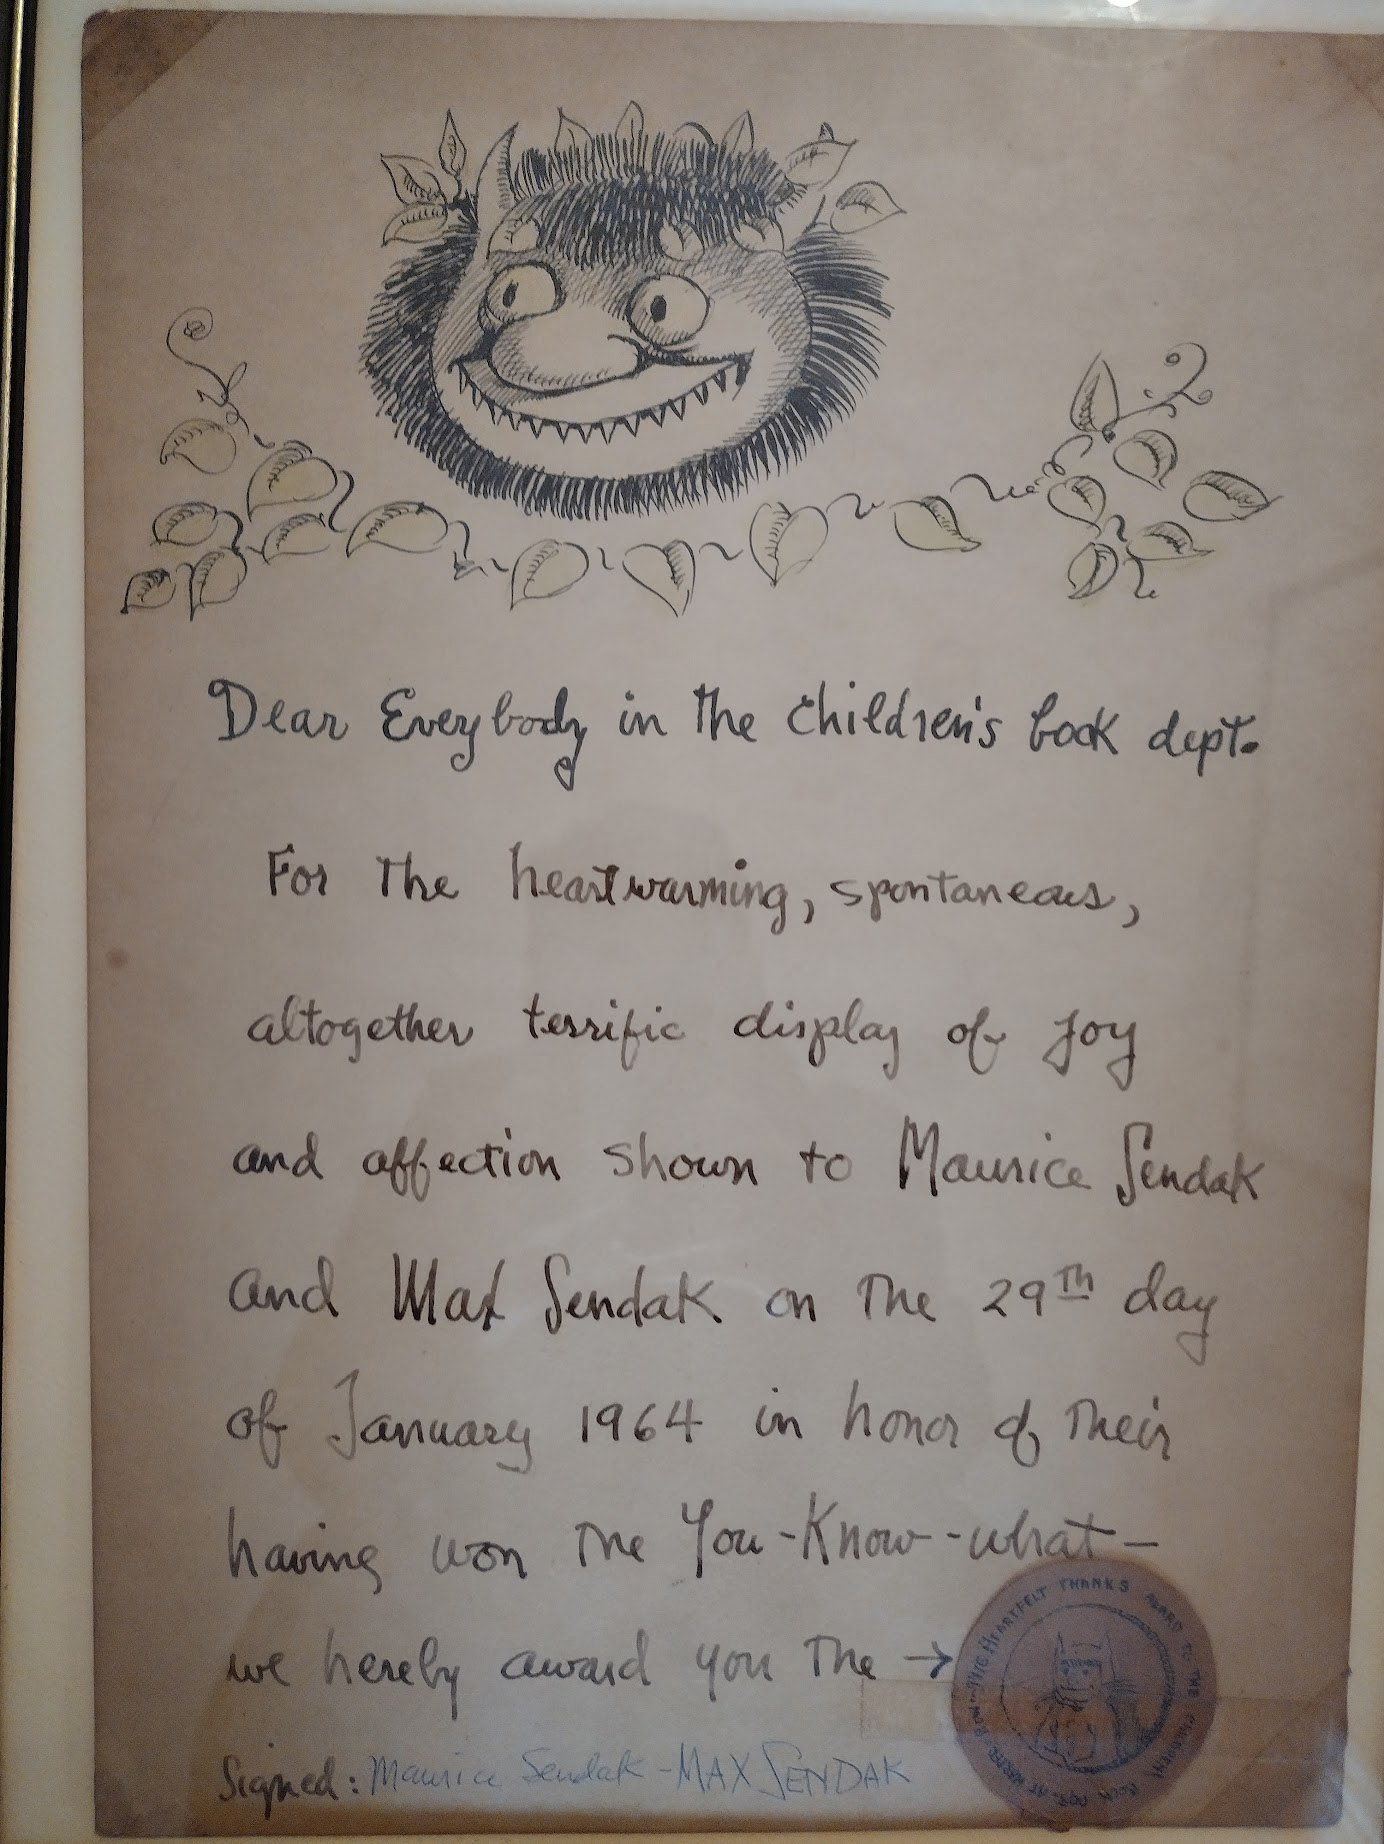 Dear Everybody in the Children's book dept.
For The heartwarming, spontaneous,
altogether terrific display of joy
and affection shown to Maurice Sendak
and Max Sendak on The 29Th day
of January 1964 in honor of Their
having won The You-Know-what-
we hereby award you The →
HEARTFELT THANKS AWARD TO THE CHILDREN'S BOOK DPT. AT HARPER ROW
Signed: Maurice Sendak - MAX SENDAK